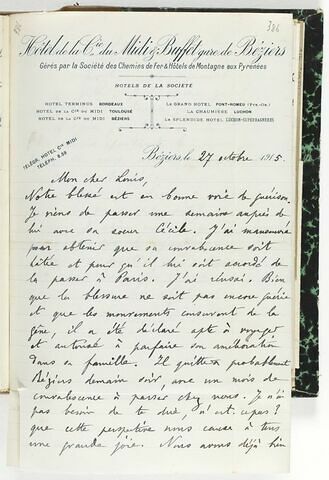 384
Hôtel de la Cie du Midi & Buffet gare de Béziers
Gérés par la Société des Chemins de Fer & Hôtels de Montagne aux Pyrénées
HOTELS DE LA SOCIÉTÉ
HOTEL TERMINUS BORDEAUX
HOTEL DE LA CIE DU MIDI TOULOUSE
HOTEL DE LA CIE DU MIDI BÉZIERS
LA GRAND HOTEL FONT-ROMEU (Pyr.-Or.)
LA CHAUMIÈRE LUCHON
LE SPLENDIDE HOTEL LUCHON-SUPERBAGNÈRES
TÉLÉGR. HOTEL CIE MIDI
TÉLÉPH. 6.59
Béziers, le 27 octobre 1915.
Mon cher Louis,
Notre blessé est en bonne voie de guérison.
Je viens de passer une semaine auprès de
lui avec sa soeur Cécile. J'ai manoeuvré
pour obtenir que sa convalescence soit
hâtée et pour qu'il lui soit accordé de
la passer à Paris. J'ai réussi. Bien
que la blessure ne soit pas encore guérie
et que les mouvements conservent de la
gêne, il a été déclaré apte à voyager
et autorisé à parfaire son amélioration
dans sa famille. Il quittera probablement
Béziers demain soir, avec un mois de
convalescence à passer chez nous. Je n'ai
pas besoin de te dire, n'est-ce pas?
que cette perspective nous cause à tous
une grande joie. Nous avons déjà bien